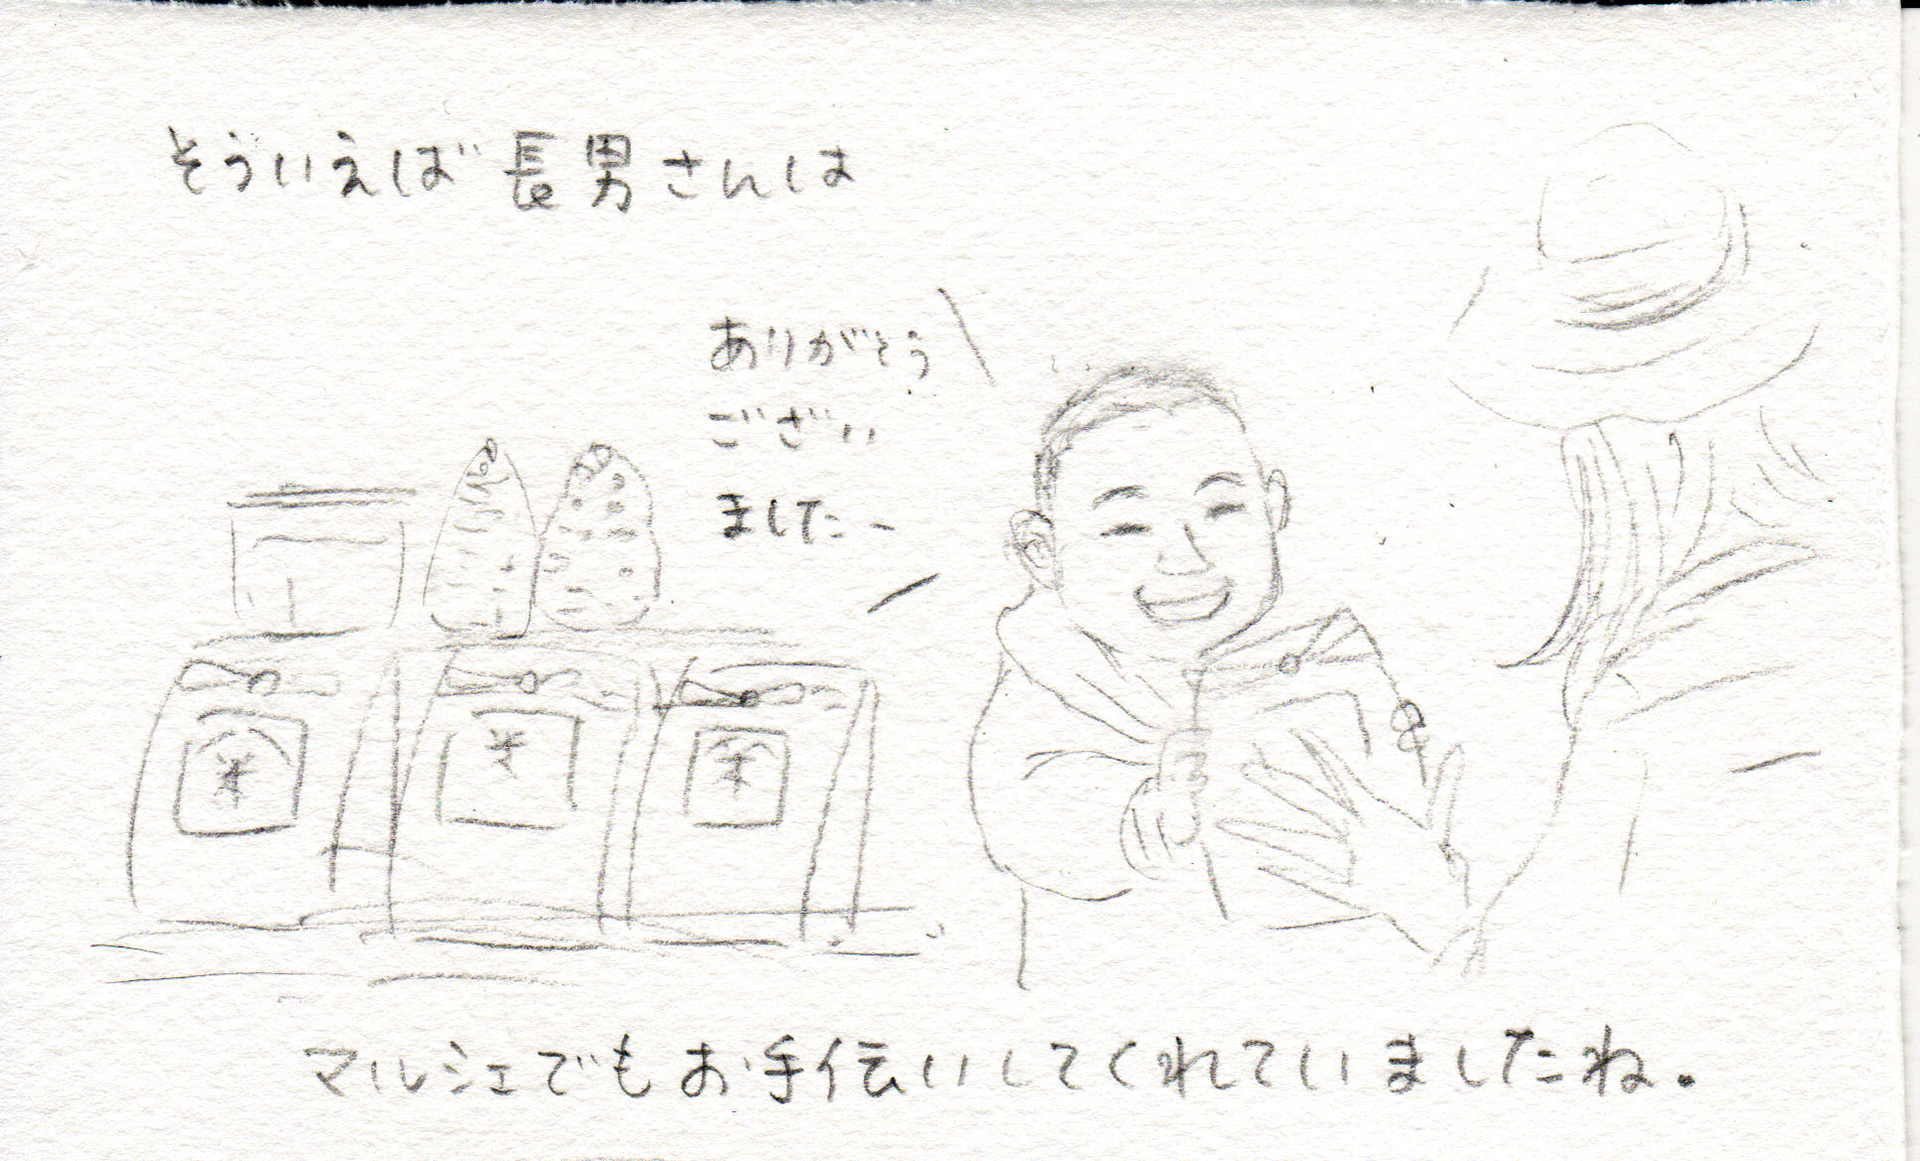 そういえば長男さんは
ありがとう
ござい
ましたー
米
米
米
マルシェでもお手伝いしてくれていましたね。